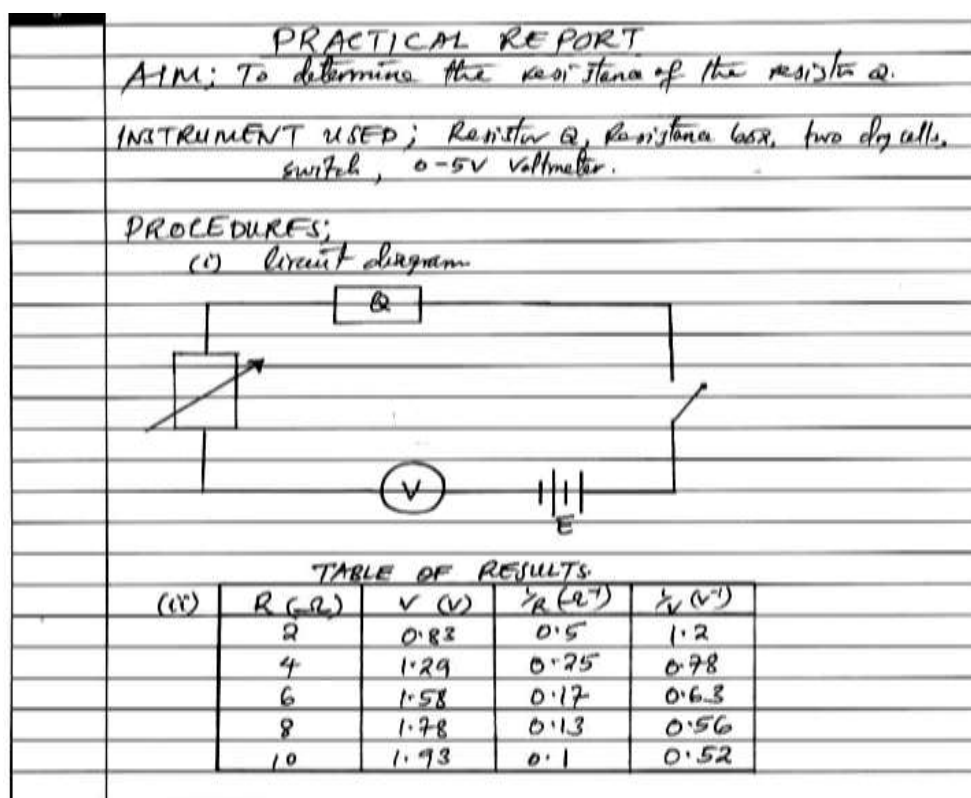 PRACTICAL REPORT
AIM; To determine the resistance of the resistor Q.
INSTRUMENT USED; Resistor Q, Resistance box, two dry cells,
switch, 0-5V Voltmeter.
PROCEDURES;
(i) Circuit diagram
Q
V
E
TABLE OF RESULTS.
(ii) R (Ω) V (V) 1/R (Ω⁻¹) 1/V (V⁻¹)
2 0.83 0.5 1.2
4 1.29 0.25 0.78
6 1.58 0.17 0.63
8 1.78 0.13 0.56
10 1.93 0.1 0.52